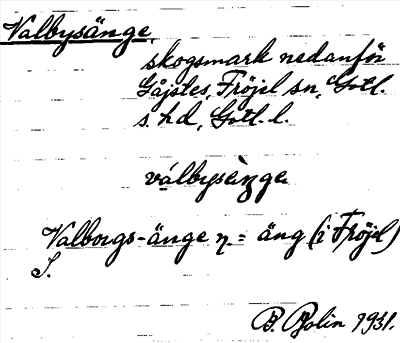 Valbysänge,
skogsmark nedanför
Gåjstes, Fröjel sn, Gotl.
s. hd, Gotl. l.
válbysèŋge
Valborgs-änge n = äng (i Fröjel)
S.
B. Bolin 1931.